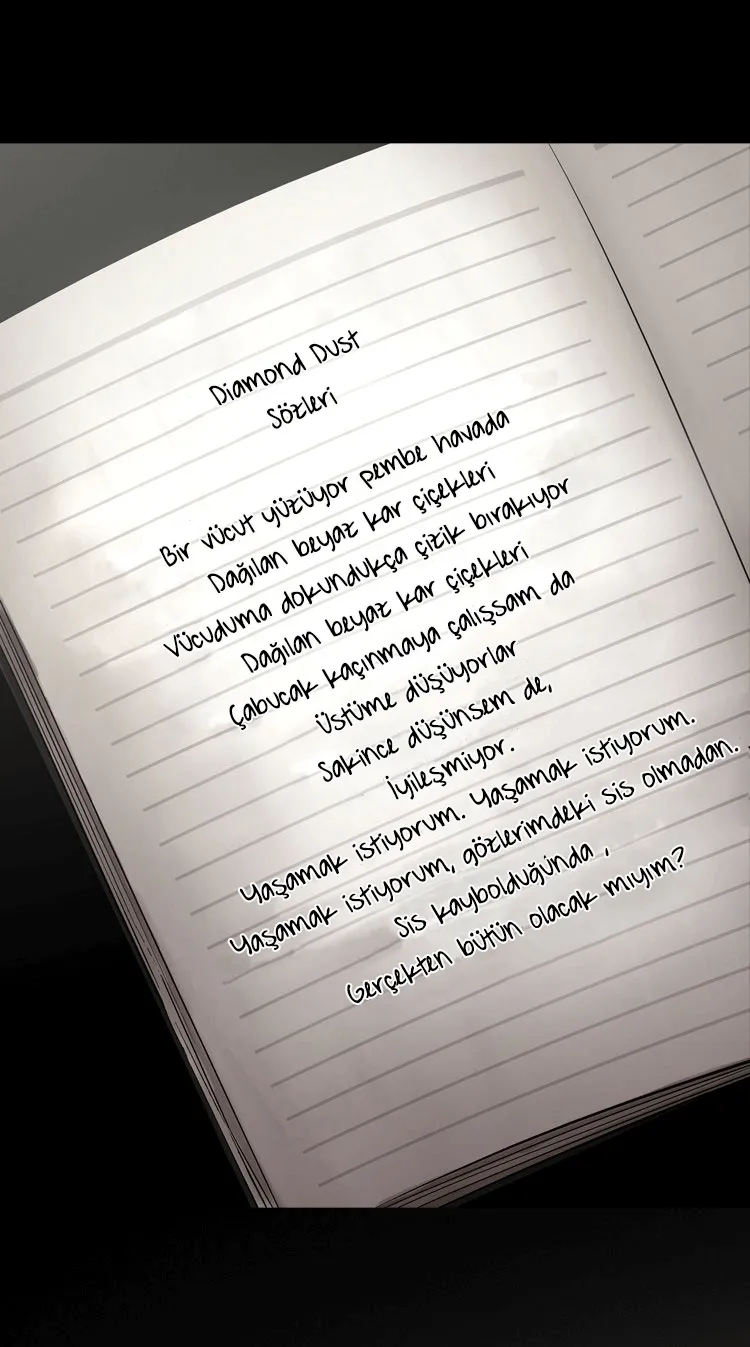 Diamond Dust
Sözleri
Bir vücut yüzüyor pembe havada
Dağılan beyaz kar çiçekleri
Vücuduma dokundukça çizik bırakıyor
Dağılan beyaz kar çiçekleri
Çabucak kaçınmaya çalışsam da
Üstüme düşüyorlar
Sakince düşünsem de,
İyileşmiyor.
Yaşamak istiyorum. Yaşamak istiyorum.
Yaşamak istiyorum, gözlerimdeki sis olmadan.
Sis kaybolduğunda ,
Gerçekten bütün olacak mıyım?